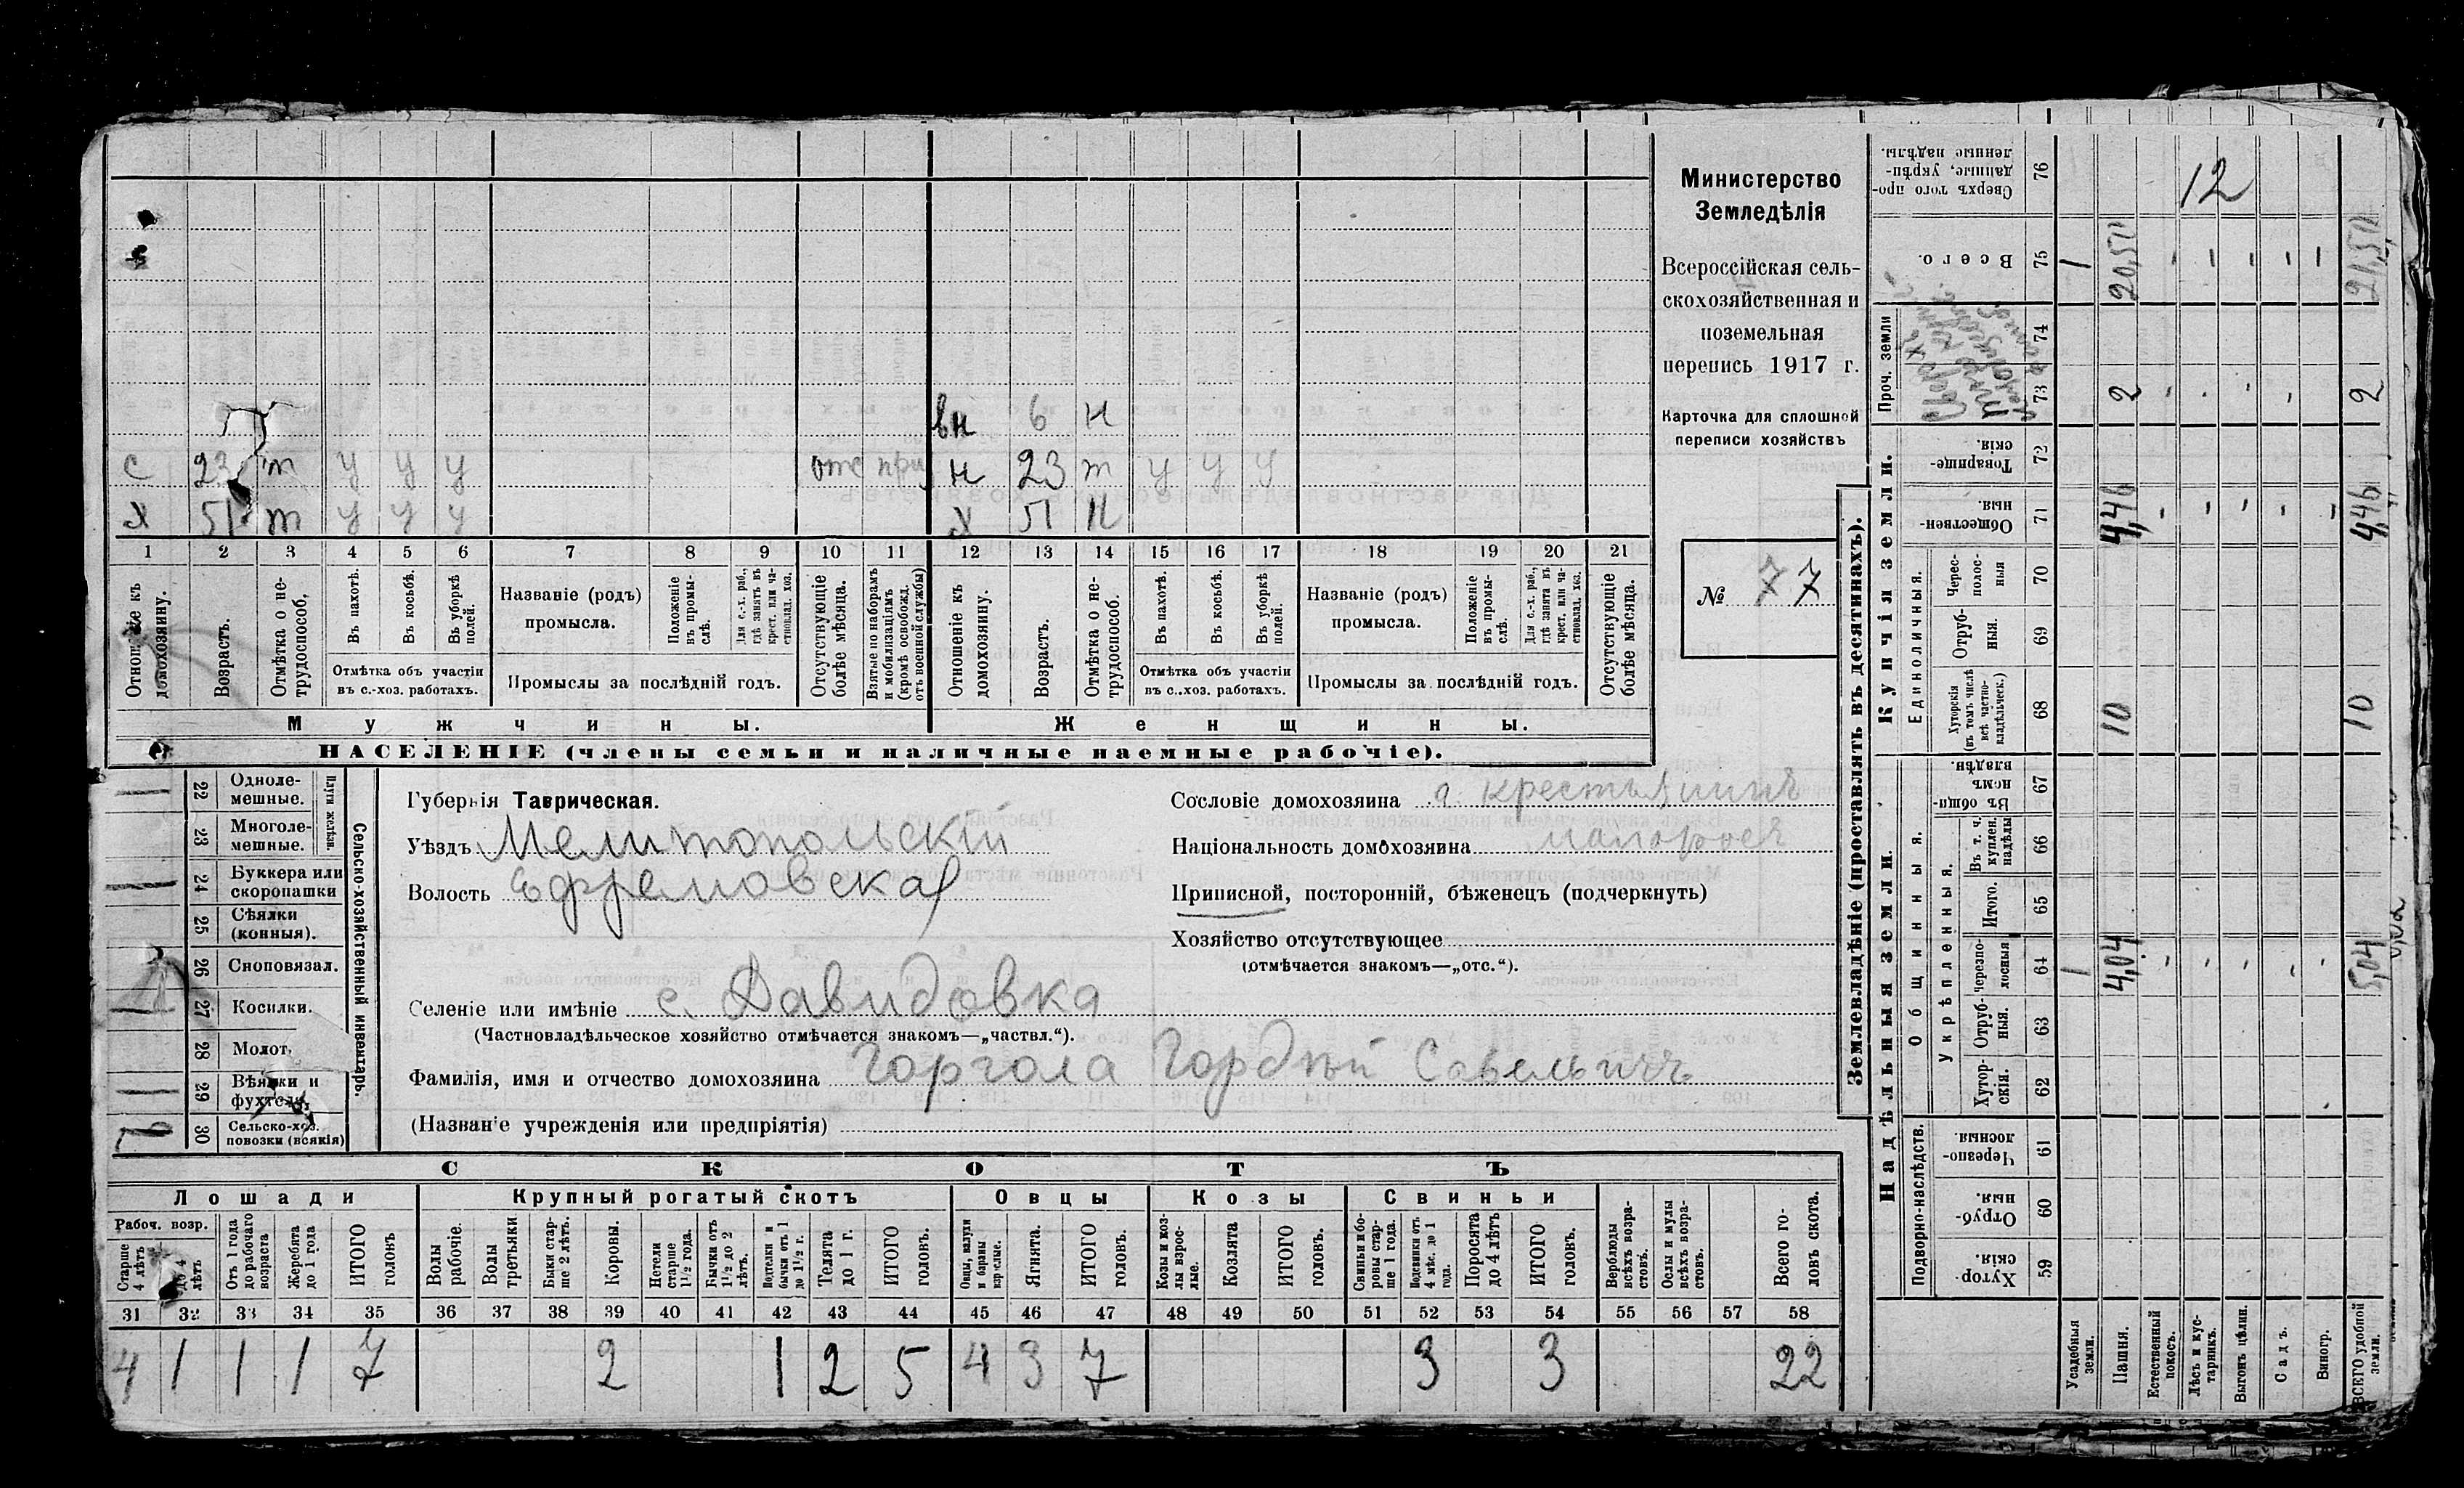 Министерство
Земледѣлія
Всероссійская сель-
скохозяйственная и
поземельная
перепись 1917 г.
Карточка для сплошной
переписи хозяйствъ
№ 77
вн 6 н
с 23 т у у у отс при н 23 т у у у
х 51 т у у у х 51 н
1 2 3 4 5 6 7 8 9 10 11 12 13 14 15 16 17 18 19 20 21
Отношеніе къ домохозяину.
Возрастъ.
Отмѣтка о не-трудоспособ.
Въ пахотѣ.
Въ косьбѣ.
Въ уборкѣ полей.
Отмѣтка объ участіи
въ с.-хоз. работахъ.
Названіе (родъ)
промысла.
Положеніе въ промы-слѣ.
Для с.-х. раб., гдѣ занятъ въ крест. или ча-стновлад. хоз.
Промыслы за послѣдній годъ.
Отсутствующіе болѣе мѣсяца.
Взятые по наборамъ и мобилизаціямъ (кромѣ освобожд. отъ военной службы)
Отношеніе къ домохозяину.
Возрастъ.
Отмѣтка о не-трудоспособ.
Въ пахотѣ.
Въ косьбѣ.
Въ уборкѣ полей.
Отмѣтка объ участіи
въ с..хоз. работахъ.
Названіе (родъ)
промысла.
Положеніе въ промы-слѣ.
Для с.-х. раб., гдѣ занята въ крест. или ча-стновлад. хоз.
Промыслы за послѣдній годъ.
Отсутствующіе болѣе мѣсяца.
Мужчины. Женщины.
НАСЕЛЕНІЕ (члены семьи и наличные наемные рабочіе).
Сельско-хозяйственный инвентарь.
Плуги желѣзн.
1 22 Одноле-мешные.
23 Многоле-мешные.
1 24 Буккера или скоропашки
25 Сѣялки (конныя).
26 Сноповязал.
1 27 Косилки.
28 Молот.
1 29 Вѣялки и фухтели,
30 Сельско-хоз. повозки (всякія)
Губернія Таврическая.
Уѣздъ Мелитопольскій
Волость Ефремовская
Селеніе или имѣніе с. Давидовка
(Частновладѣльческое хозяйство отмѣчается знакомъ—„частвл.“).
Фамилія, имя и отчество домохозяина Горгола Гордѣй Савельичъ
(Назван'е учрежденія или предпріятія)
Сословіе домохозяина крестьянинъ
Національность домохозяина малороссъ
Приписной, посторонній, бѣженецъ (подчеркнуть)
Хозяйство отсутствующее
(отмѣчается знакомъ—„отс.“).
СКОТЪ
Лошади Крупный рогатый скотъ Овцы Козы Свиньи
Рабоч. возр.
Старше 4 лѣтъ
до 4 лѣтъ
Отъ 1 года до рабочаго возраста
Жеребята до 1 года
ИТОГО головъ
Волы рабочіе.
Волы третьяки
Быки стар-ше 2 лѣтъ.
Коровы.
Нетели старше 1½ года.
Бычки отъ 1½ до 2 лѣтъ.
Подтелки и бычки отъ 1 до 1½ г.
Телята до 1 г.
ИТОГО головъ.
Овцы, валухи и бараны взрослые.
Ягнята.
ИТОГО головъ.
Козы и коз-лы взрос-лые.
Козлята
ИТОГО головъ.
Свиньи и бо-ровы стар-ше 1 года.
Подсвинки отъ 4 мѣс. до 1 года.
Поросята до 4 лѣтъ
ИТОГО головъ.
Верблюды всѣхъ возра-стовъ.
Ослы и мулы всѣхъ возра-стовъ.
Всего го-ловъ скота.
31 32 33 34 35 36 37 38 39 40 41 42 43 44 45 46 47 48 49 50 51 52 53 54 55 56 57 58
4 1 1 1 7 2 1 2 5 4 3 7 3 3 22
Землевладѣніе (проставлять въ десятинахъ).
Надѣльныя земли. Купчія земли. Проч. земли
Подворно-наслѣдств. Общинныя. Единоличныя.
Укрѣпленныя.
Хутор-скія. 59
Отруб-ныя. 60
Черезпо-лосныя. 61
Хутор-скія. 62
Отруб-ныя. 63
черезпо-лосныя 64 1 4,04 5,04
Итого. 65
Въ т. ч. куплен. надѣлы 66
Въ общи-номъ владѣн. 67
Хуторскія (въ томъ числѣ всѣ частно-владѣльческ.) 68 10 10
Отруб-ныя. 69
Черес-полос-ныя 70
Обществен-ныя. 71 4,46 4,46
Товарище-скія. 72
73 2 2
74
Всего. 75 1 20,50 21,50
Сверхъ того про-данные, укрѣп-ленные надѣлы. 76 12
Усадебныя земли.
Пашня.
Естественный покосъ.
Лѣсъ и кус-тарникъ.
Выгонъ цѣлин.
Садъ.
Виногр.
ВСЕГО удобной земли.